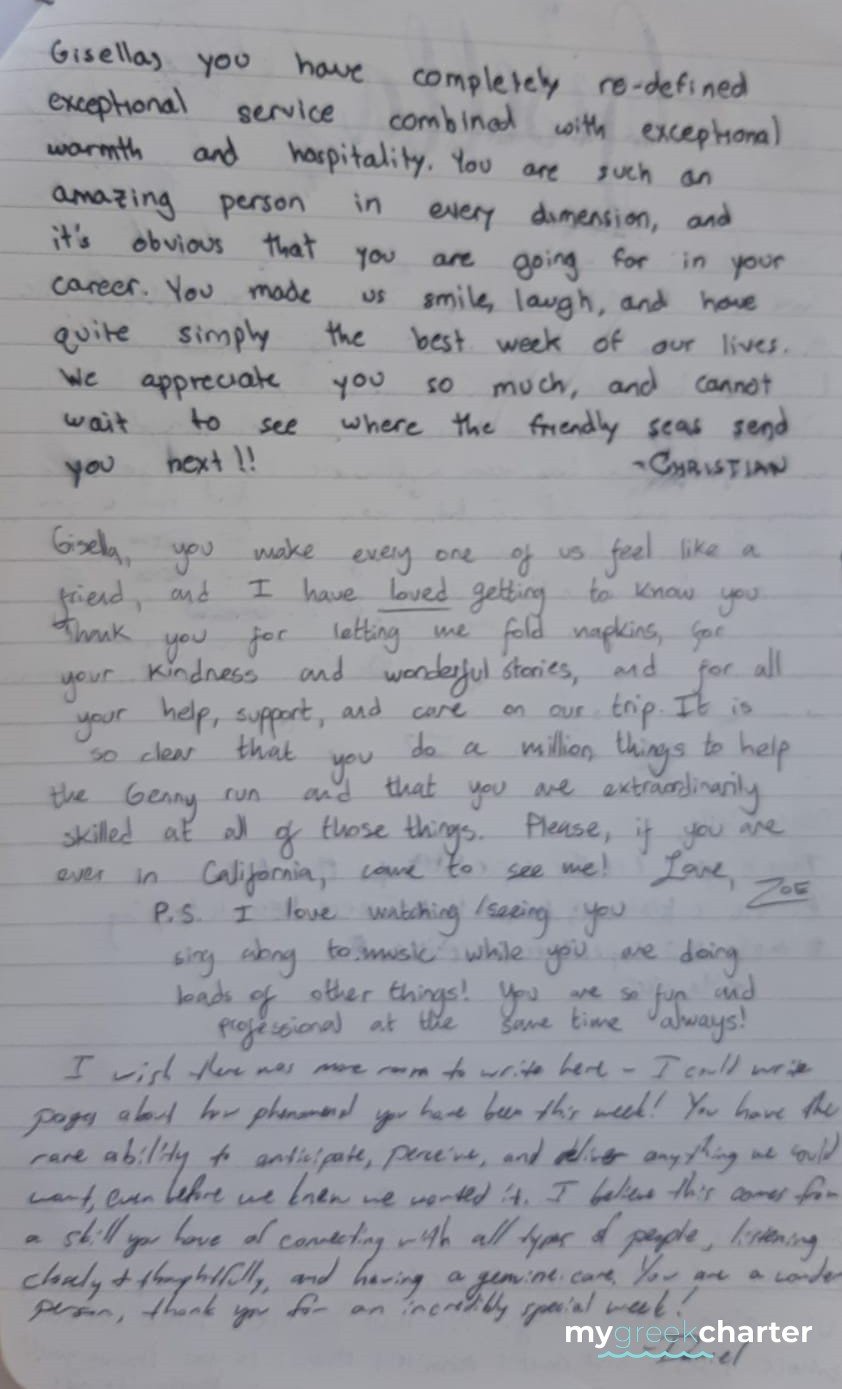 Gisella, you have completely re-defined
exceptional service combined with exceptional
warmth and hospitality. You are such an
amazing person in every dimension, and
it's obvious that you are going far in your
career. You made us smile, laugh, and have
quite simply the best week of our lives.
We appreciate you so much, and cannot
wait to see where the friendly seas send
you next!!
-CHRISTIAN
Gisella, you make every one of us feel like a
friend, and I have loved getting to know you
Thank you for letting me fold napkins, for
your kindness and wonderful stories, and for all
your help, support, and care on our trip. It is
so clear that you do a million things to help
the Genny run and that you are extraordinarily
skilled at all of those things. Please, if you are
ever in California, come to see me! Love,
ZOE
P.S. I love watching/seeing you
sing along to music while you are doing
loads of other things! You are so fun and
professional at the same time always!
I wish there was more room to write here - I could write
pages about how phenomenal you have been this week! You have the
rare ability to anticipate, perceive, and deliver anything we could
want, even before we knew we wanted it. I believe this comes from
a skill you have of connecting with all types of people, listening
closely & thoughtfully, and having a genuine care. You are a wonder
person, thank you for an incredibly special week!
mygreekcharter
-Daniel